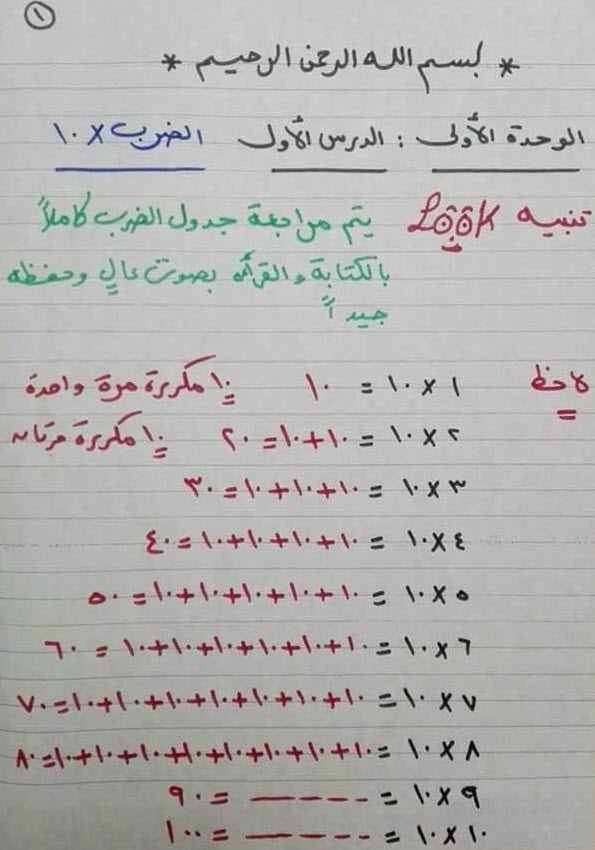 ١
* بسم الله الرحمن الرحيم *
الوحدة الأولى : الدرس الأول الضرب × ١٠
تنبيه LOOK يتم مراجعة جدول الضرب كاملاً
بالكتابة والقرأه بصوت عالٍ وحفظه
جيداً
لاحظ ١ × ١٠ = ١٠ ١٠ مكررة مرة واحدة
٢ × ١٠ = ١٠+١٠ = ٢٠ ١٠ مكررة مرتان
٣ × ١٠ = ١٠+١٠+١٠ = ٣٠
٤ × ١٠ = ١٠+١٠+١٠+١٠ = ٤٠
٥ × ١٠ = ١٠+١٠+١٠+١٠+١٠ = ٥٠
٦ × ١٠ = ١٠+١٠+١٠+١٠+١٠+١٠ = ٦٠
٧ × ١٠ = ١٠+١٠+١٠+١٠+١٠+١٠+١٠ = ٧٠
٨ × ١٠ = ١٠+١٠+١٠+١٠+١٠+١٠+١٠+١٠ = ٨٠
٩ × ١٠ = ----- = ٩٠
١٠ × ١٠ = ----- = ١٠٠